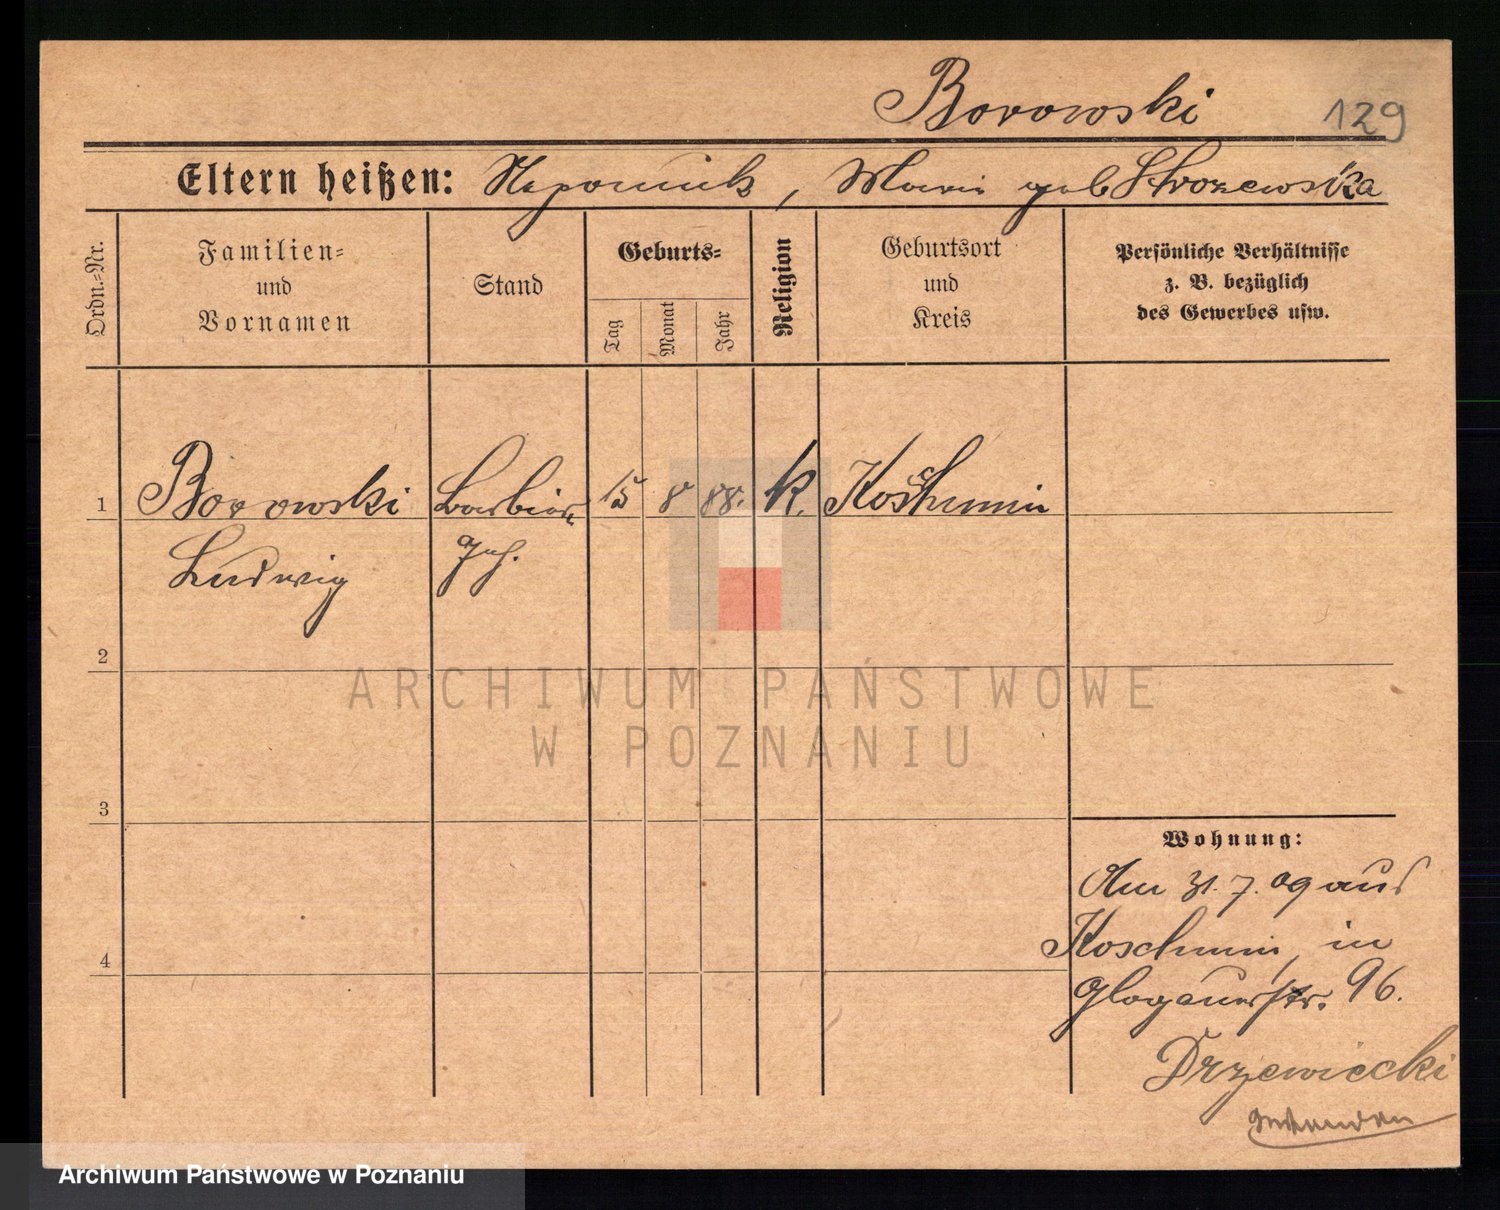 Borowski 129
Eltern heißen: Nepomuk, Marie geb Skrozewska
Ordn.-Nr.
Familien-
und
Vornamen
Stand
Geburts-
Tag
Monat
Jahr
Religion
Geburtsort
und
Kreis
Persönliche Verhältnisse
z. B. bezüglich
des Gewerbes usw.
1 Borowski Barbier 15 8 88. k. Koschmin
Ludwig Geh.
2
ARCHIWUM PAŃSTWOWE
W POZNANIU
3
Wohnung:
Am 31. 7. 09 aus
4 Koschmin, in
Glogauerstr. 96.
Drzewiecki
Archiwum Państwowe w Poznaniu